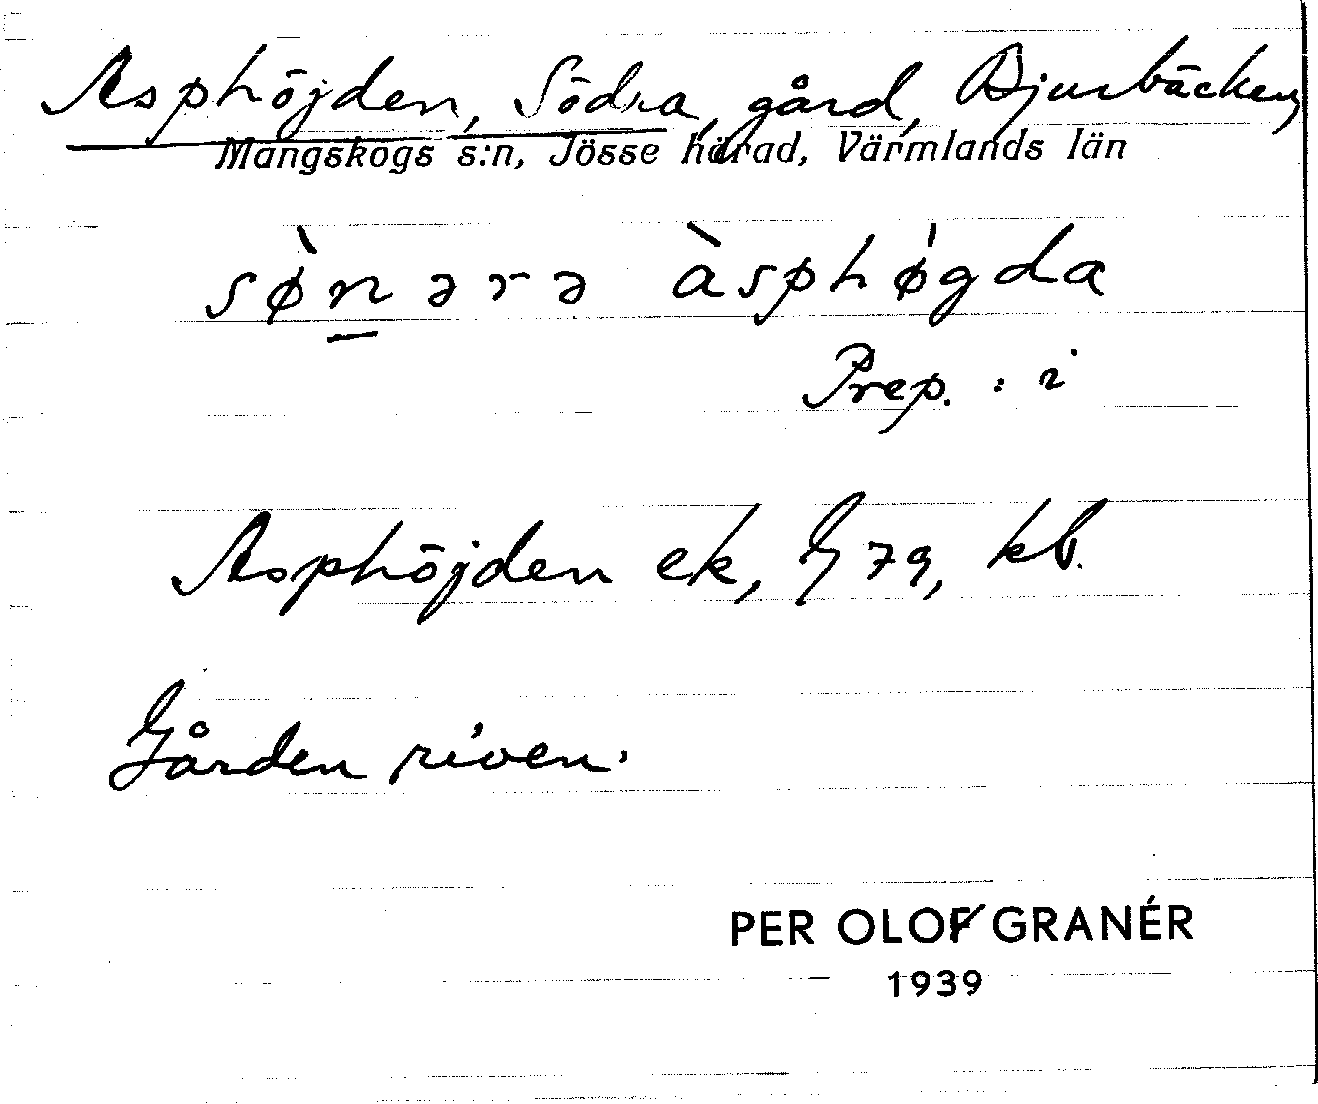 Asphöjden, Södra, gård, Djurbäcken,
Mangskogs s:n, Jösse härad, Värmlands län
sø̀n̲ərə àsphø̍gda
Prep. : i
Asphöjden ek, G 79, kb.
Gården riven.
PER OLOF GRANÉR
1939